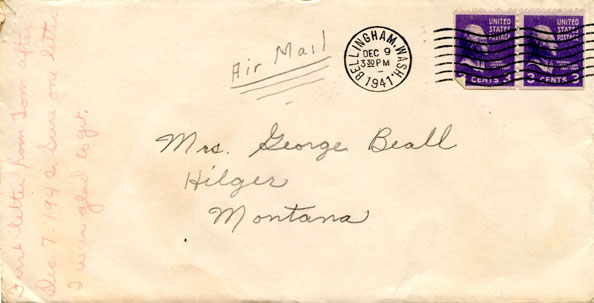 Air Mail
BELLINGHAM, WASH.
DEC 9
3 30 PM
1941
UNITED
STATES
POSTAGE
3 CENTS 3
UNITED
STATES
POSTAGE
3 CENTS 3
Mrs. George Beall
Hilger
Montana
First letter from Tom after
Dec 7. 1942 Sure one letter
I was glad to get.